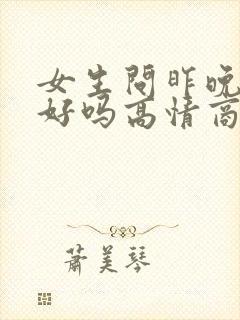 女生問昨晚
好吗高情商
萧美琴